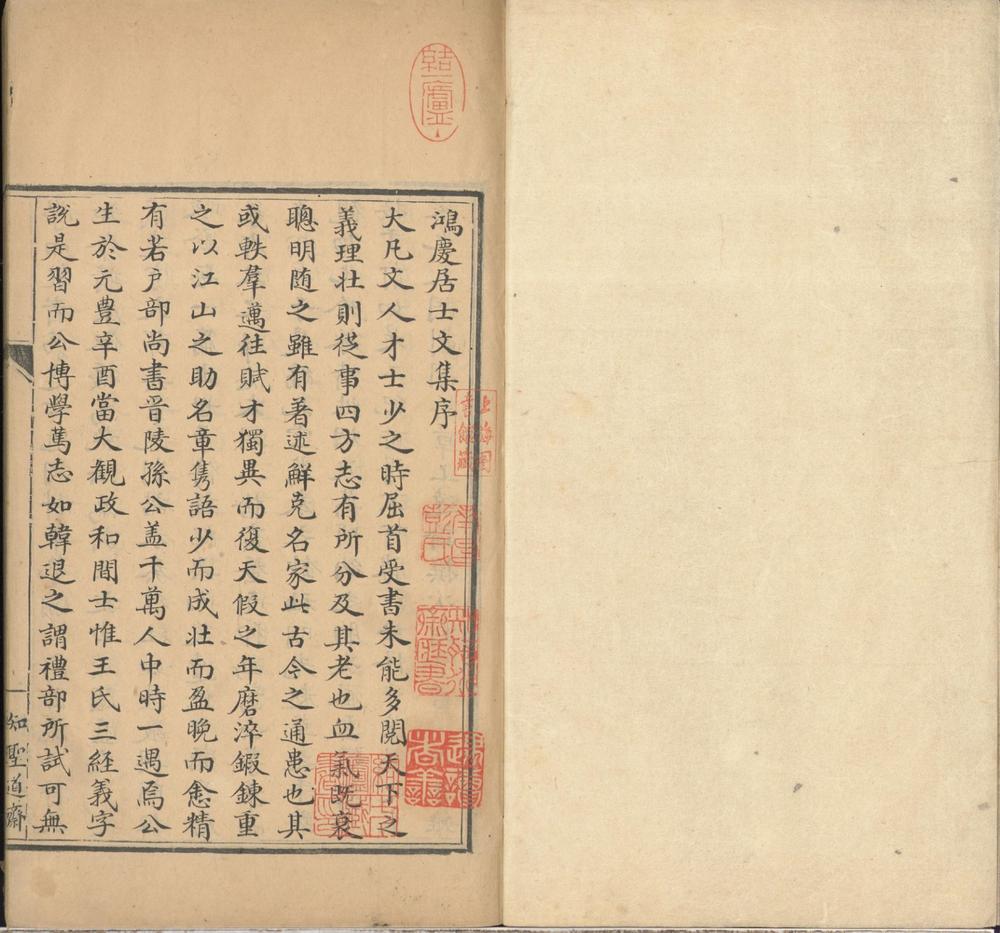 鴻慶居士文集序
大凡文人才士少之時屈首受書未能多閱天下之
義理壯則從事四方志有所分及其老也血氣既衰
聰明随之雖有著述鮮克名家此古今之通患也其
或軼羣邁往賦才獨異而復天假之年磨淬鍛鍊重
之以江山之助名章雋語少而成壯而盈晚而愈精
有若户部尚書晉陵孫公盖千萬人中時一遇焉公
生於元豊辛酉當大觀政和間士惟王氏三経義字
說是習而公博學篤志如韓退之謂禮部所試可無
知聖道齋
結一廬
上海圖
書館藏
南昌
彭氏
知聖道
齋藏書
遇讀
者善